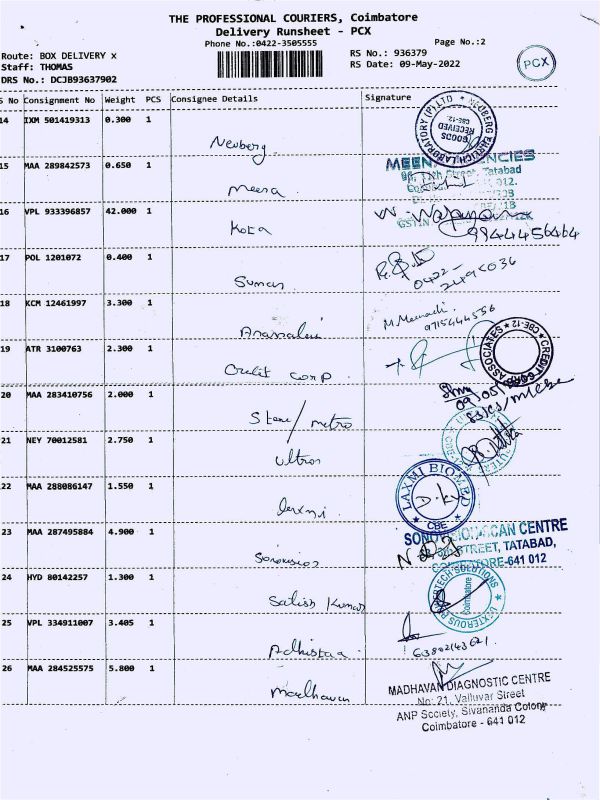 THE PROFESSIONAL COURIERS, Coimbatore
Delivery Runsheet - PCX
Phone No.:0422-3505555
Page No.:2
Route: BOX DELIVERY x
Staff: THOMAS
DRS No.: DCJB93637902
RS No.: 936379
RS Date: 09-May-2022
PCX
S No Consignment No Weight PCS Consignee Details Signature
14 IXM 501419313 0.300 1 Neuberg
NEUBERG EHRLICH LABORATORY (P) LTD
GOODS RECEIVED
CBE-12
15 MAA 289842573 0.650 1 Meera
16 VPL 933396857 42.000 1 Kota
9944456464
17 POL 1201072 0.400 1 Suman
0422-2495036
18 KCM 12461997 3.300 1
M. Meenachi
9715444556
19 ATR 3100763 2.300 1 Credit Corp
CREDIT CORP ASSOCIATES CBE-12
20 MAA 283410756 2.000 1 Stene/metro
21 NEY 70012581 2.750 1 Ultron
22 MAA 288086147 1.550 1 laxmi
LAXMI BIOMED
CBE
23 MAA 287495884 4.900 1
SCAN CENTRE
STREET, TATABAD,
COIMBATORE-641 012
24 HYD 80142257 1.300 1 Satish Kumar
SOLUTIONS
Coimbatore
25 VPL 334911007 3.405 1 Adhistaa
63802143621
26 MAA 284525575 5.800 1 Madhavan
MADHAVAN DIAGNOSTIC CENTRE
No: 21, Valluvar Street
ANP Society, Sivananda Colony
Coimbatore - 641 012